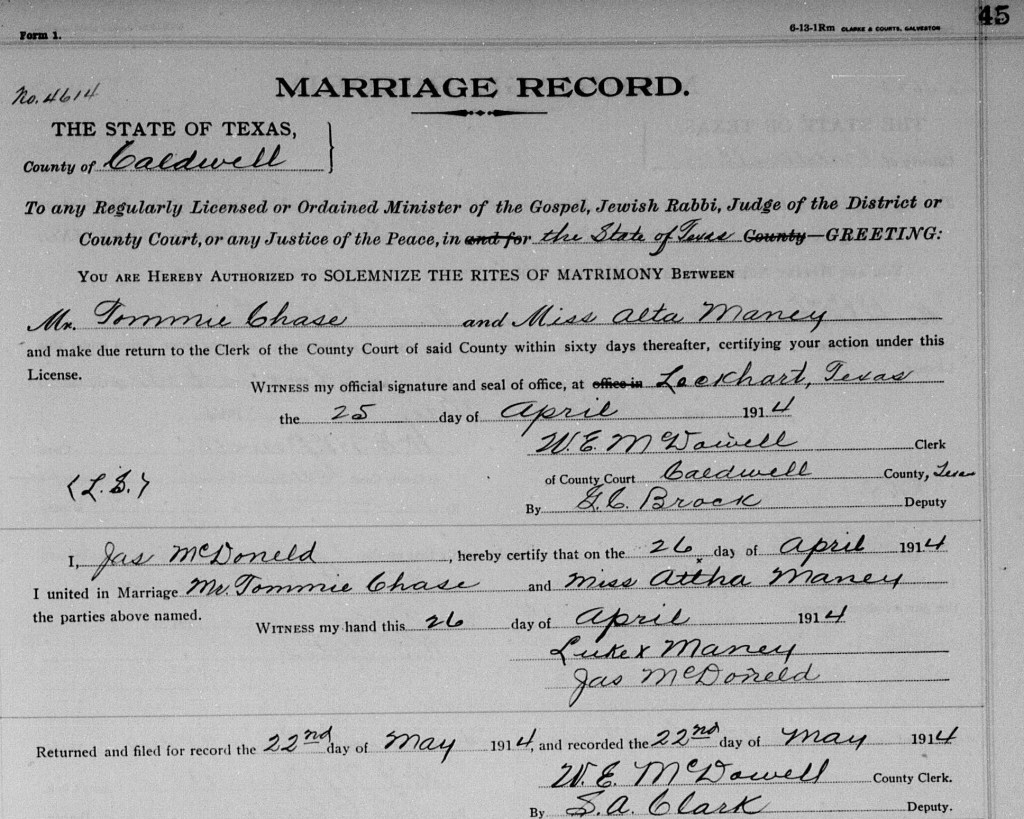 45
Form 1.
6-13-1Rm CLARKE & COURTS, GALVESTON
No. 4614
MARRIAGE RECORD.
THE STATE OF TEXAS,
County of Caldwell
To any Regularly Licensed or Ordained Minister of the Gospel, Jewish Rabbi, Judge of the District or
County Court, or any Justice of the Peace, in and for the State of Texas County—GREETING:
YOU ARE HEREBY AUTHORIZED TO SOLEMNIZE THE RITES OF MATRIMONY BETWEEN
Mr. Tommie Chase and Miss Alta Maney
and make due return to the Clerk of the County Court of said County within sixty days thereafter, certifying your action under this
License.
WITNESS my official signature and seal of office, at office in Lockhart, Texas
the 25 day of April 1914
W. E. McDowell Clerk
of County Court Caldwell County, Texas
(L.S.)
By G. C. Brock Deputy
I, Jas McDoneld, hereby certify that on the 26 day of April 1914
I united in Marriage Mr. Tommie Chase and Miss Attha Maney
the parties above named.
WITNESS my hand this 26 day of April 1914
Luke x Maney
Jas McDoneld
Returned and filed for record the 22nd day of May 1914, and recorded the 22nd day of May 1914
W. E. McDowell County Clerk.
By S. A. Clark Deputy.